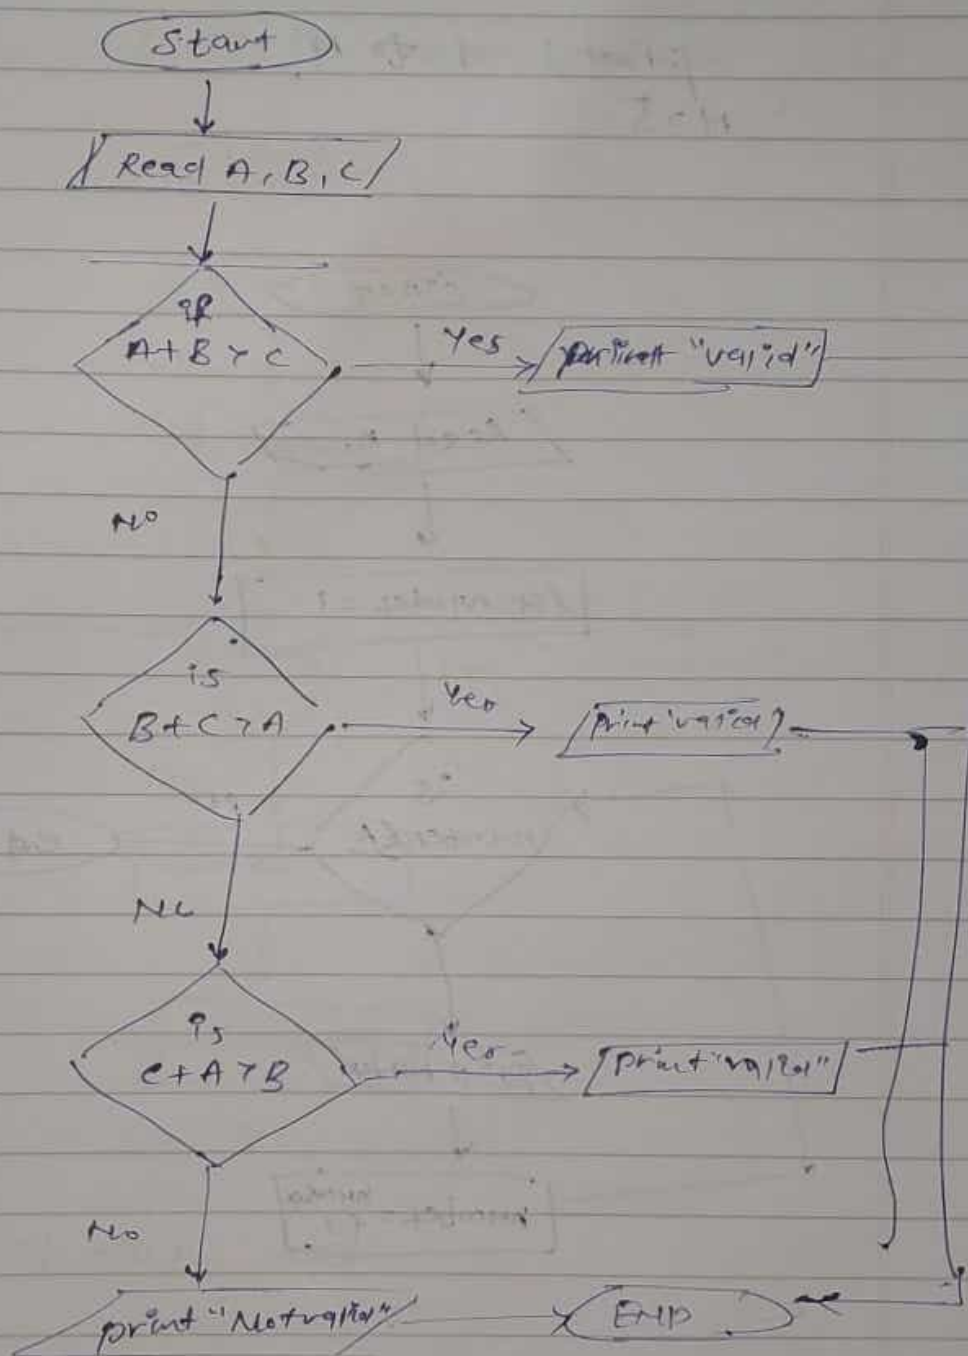 Start
Read A, B, C
if
A + B > C
Yes
print "valid"
No
is
B + C > A
Yes
print "valid"
No
is
C + A > B
Yes
print "valid"
No
print "Not valid"
END